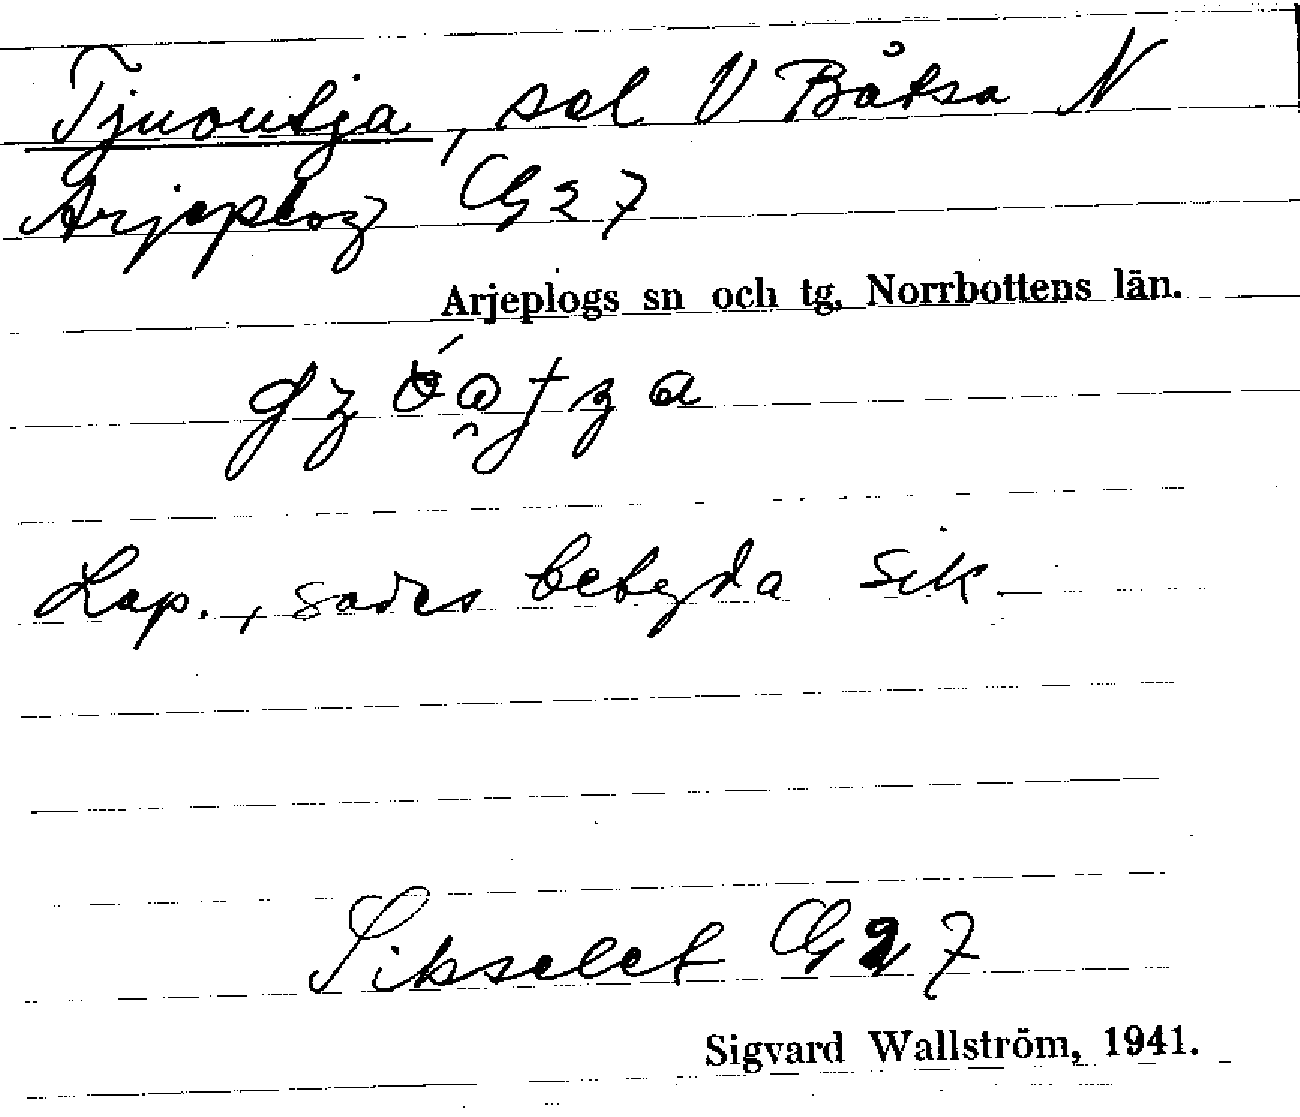 Tjuoutja, sel V Båtsa N
Arjeplog G27
Arjeplogs sn och tg, Norrbottens län.
Lap., sades betyda sik.
Sikselet G27
Sigvard Wallström, 1941.